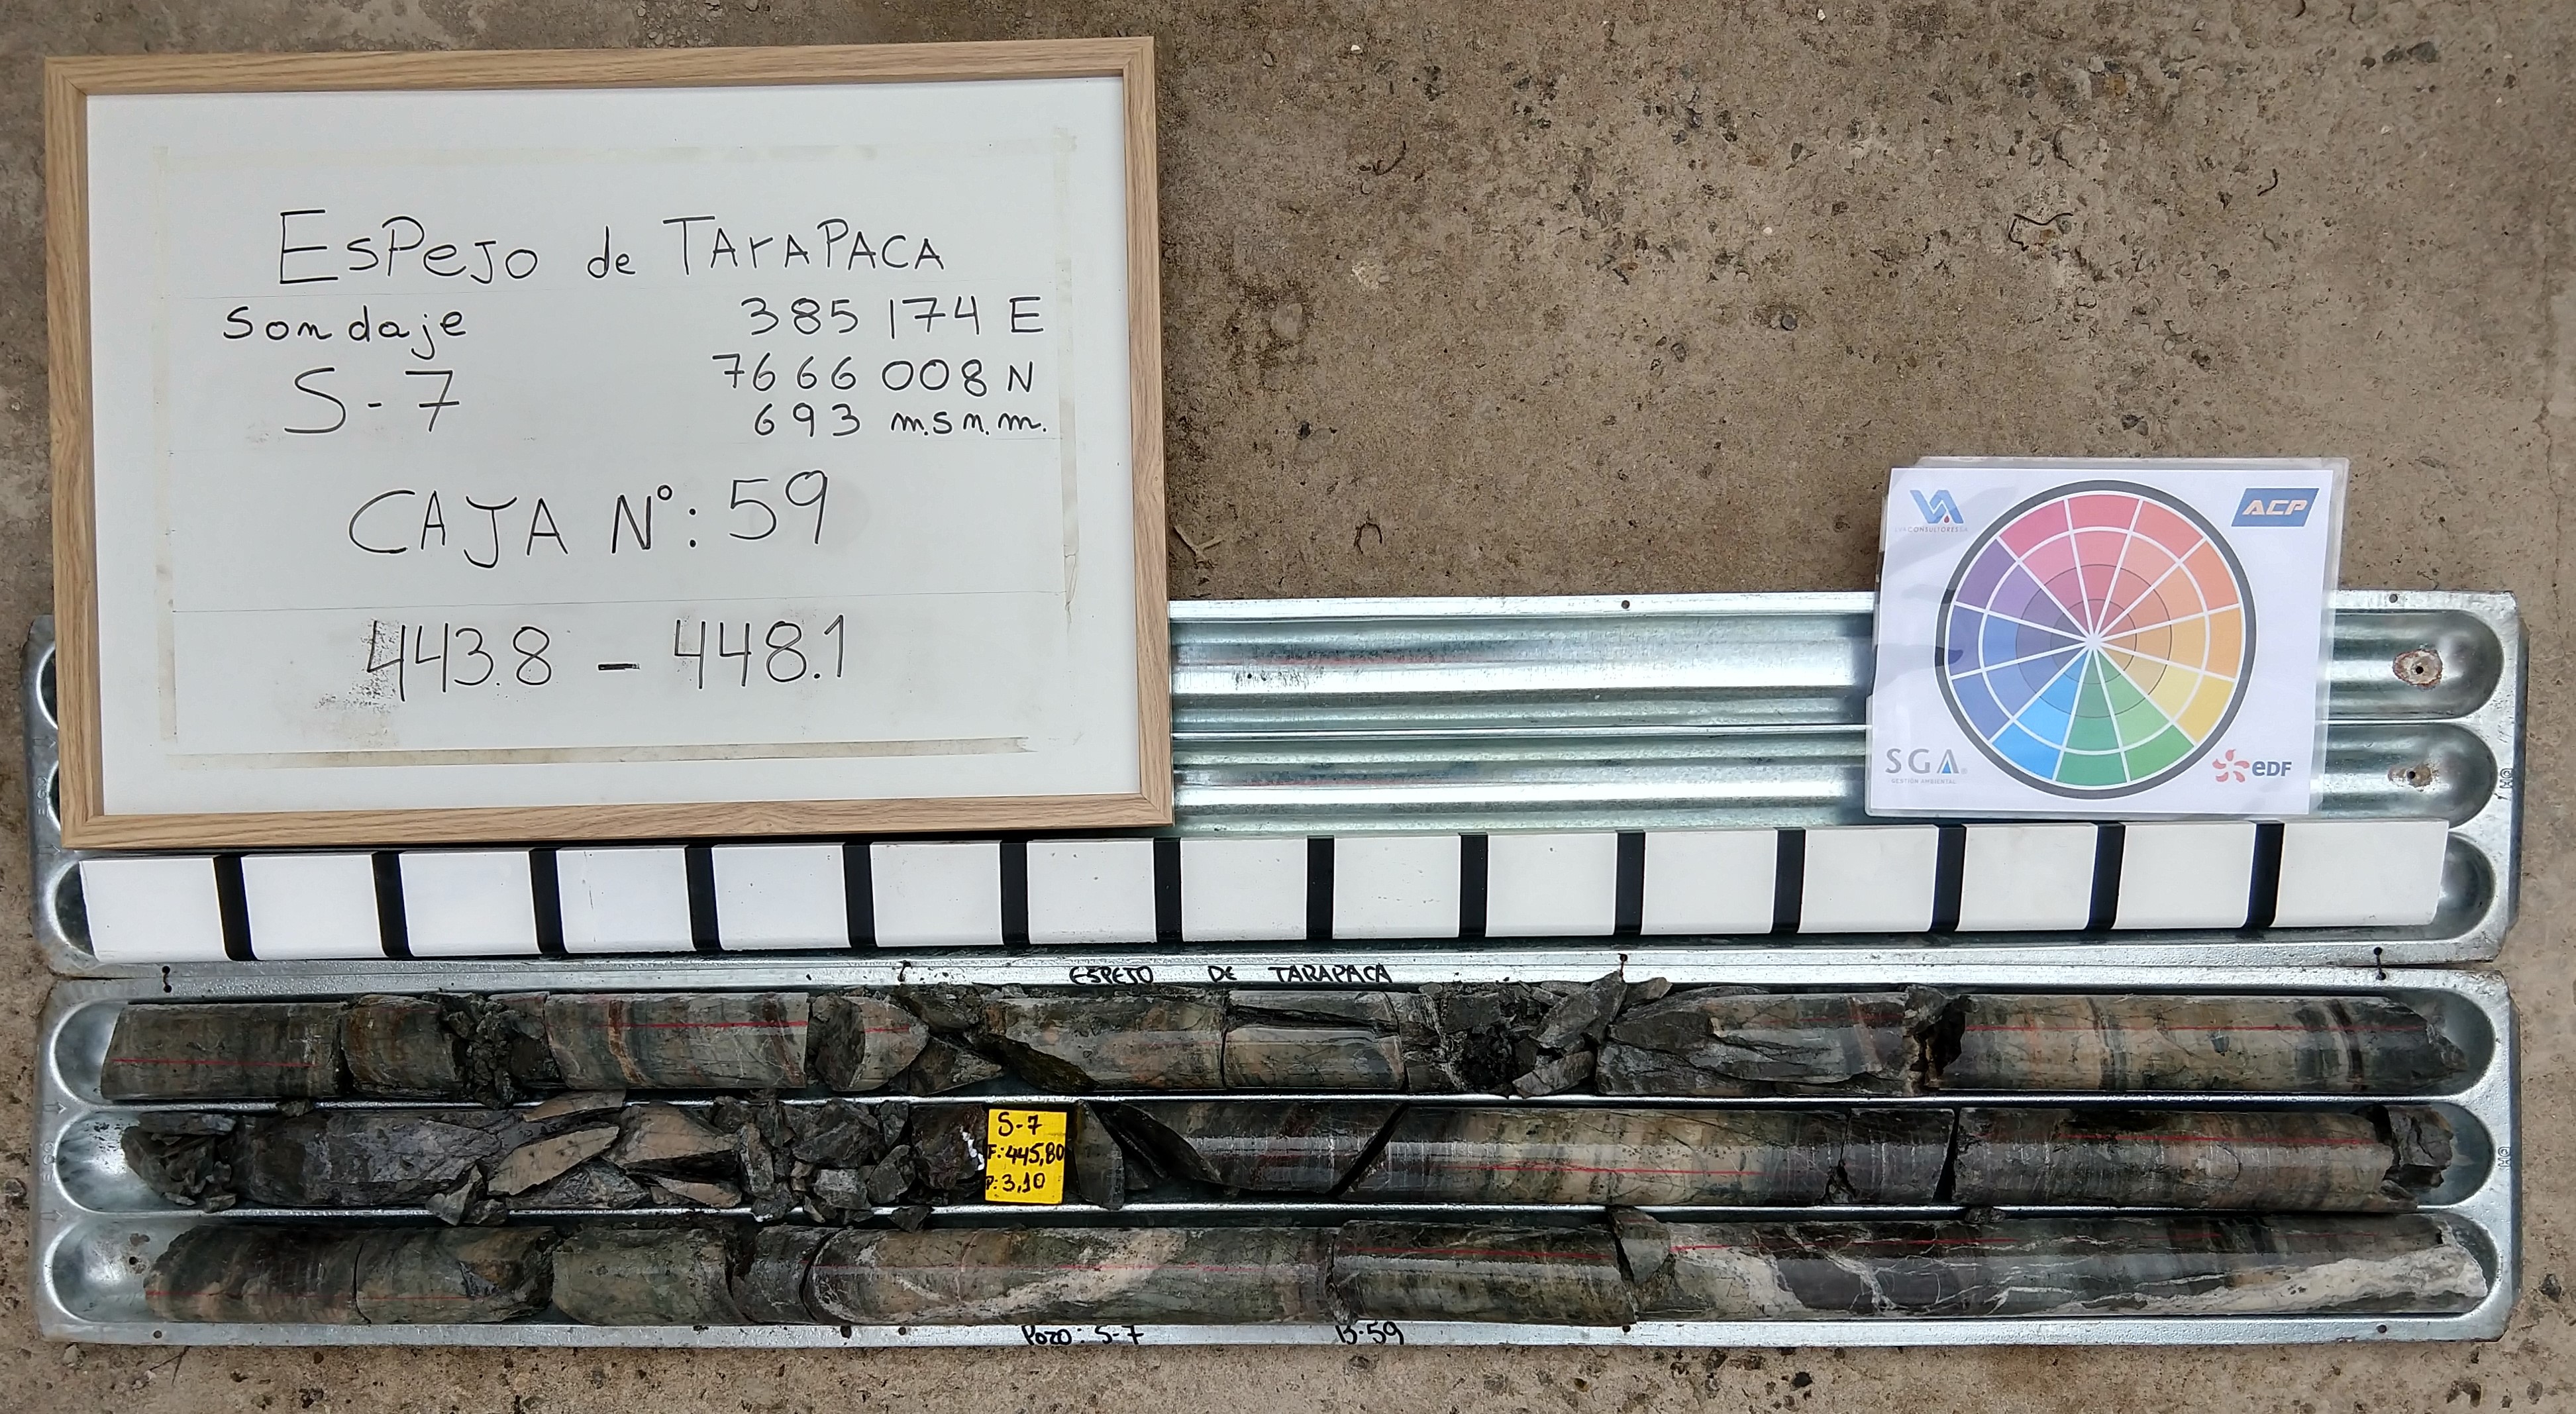 ESPEJO de TARAPACA
Sondaje
385 174 E
S-7
7666 008 N
693 m.s.n.m.
CAJA N°: 59
443.8 - 448.1
VA
CONSULTORES
ACP
SGA
GESTIÓN AMBIENTAL
eDF
ESPEJO DE TARAPACA
S-7
F: 445,80
P: 3,10
HQ
HQ
POZO: S-7
B-59